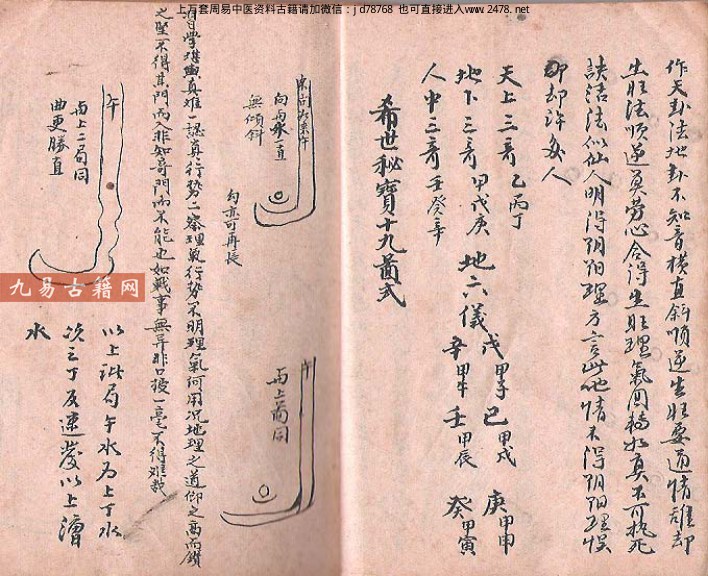 上万套周易中医资料古籍请加微信：jd78768 也可直接进入www.2478.net
作天卦法地卦不知音橫直斜順逆生旺要通情誰却
生旺法順逆莫勞心合得生旺理氣圓轉如真不可执死
訣活法似仙人明得阴阳理方言此地情不得阴阳理悮
却許多人
天上三奇乙丙丁
地下三奇甲戊庚
人中三奇壬癸辛
地六儀戊甲子己甲戌庚甲申
辛甲午壬甲辰癸甲寅
希世秘寶十九啚式
向丙 一直
無傾斜
向亦可再長
午
与上啚同
習學堪輿真难一認真行势二察理氣行势不明理氣何用况地理之道仰之高而鑽
之堅不得其門而入非知音門而不能也如戰事無异非口授一毫不得难哉
午
与上二局同
曲更勝直
以上 局午水为上丁水
次之丁及速發以上
水
九易古籍网